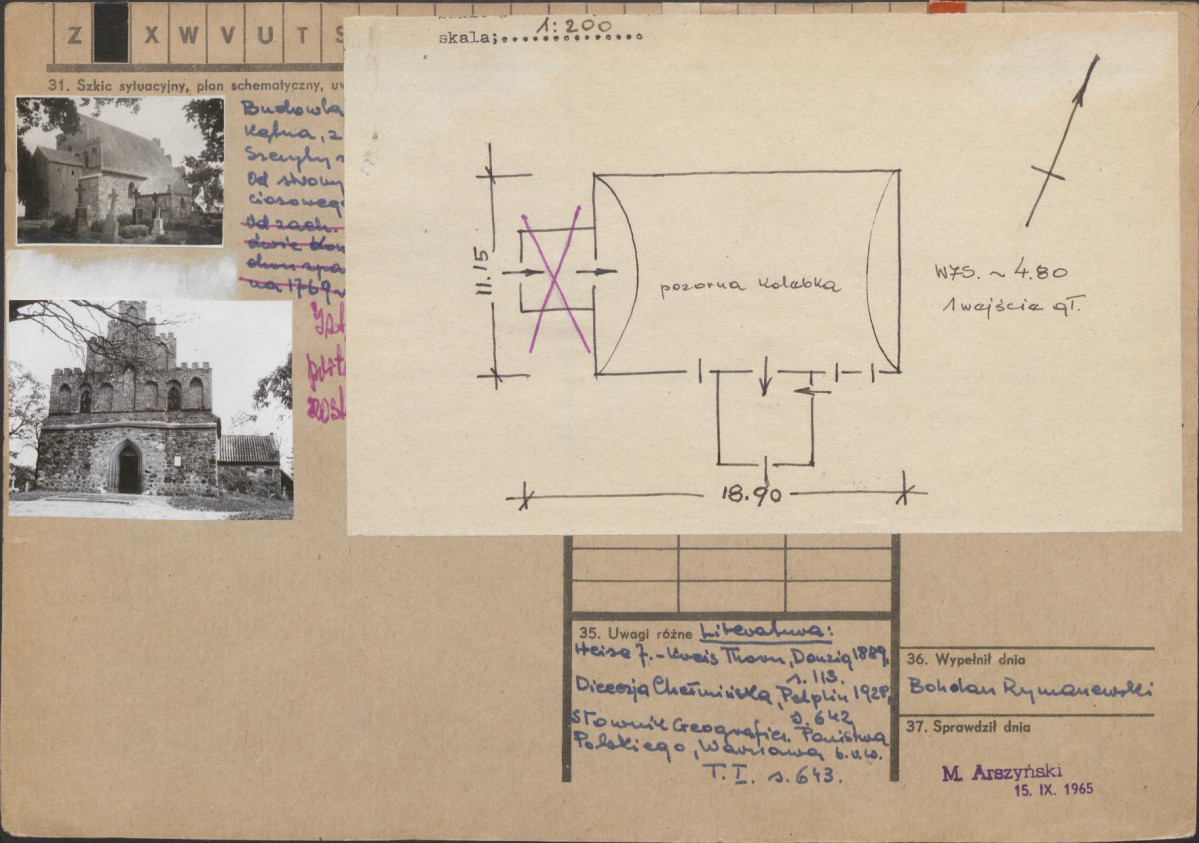 Z X W V U T S
skala; 1:200
31. Szkic sytuacyjny, plan schematyczny,
Budowla
Kątna, z
Szczyty
Od strony
ciosowego
Od zach.
dwie
na 1769
11.15
pozorna kolebka
wys. ~ 4.80
1 wejście gł.
18.90
35. Uwagi różne Literatura:
Heise J. - Kreis Thorn, Danzig 1889,
s. 113.
Diecezja Chełmińska, Pelplin 1928,
s. 642,
Słownik Geografic. Państwa
Polskiego, Warszawa b.u.w.
T. I. s. 643.
36. Wypełnił dnia
Bohdan Rymaszewski
37. Sprawdził dnia
M. Arszyński
15. IX. 1965